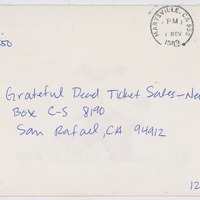 MARYSVILLE, CA 959
PM
1 NOV
Grateful Dead Ticket Sales-Ne
Box C-S 8190
San Rafael, CA 94912
12